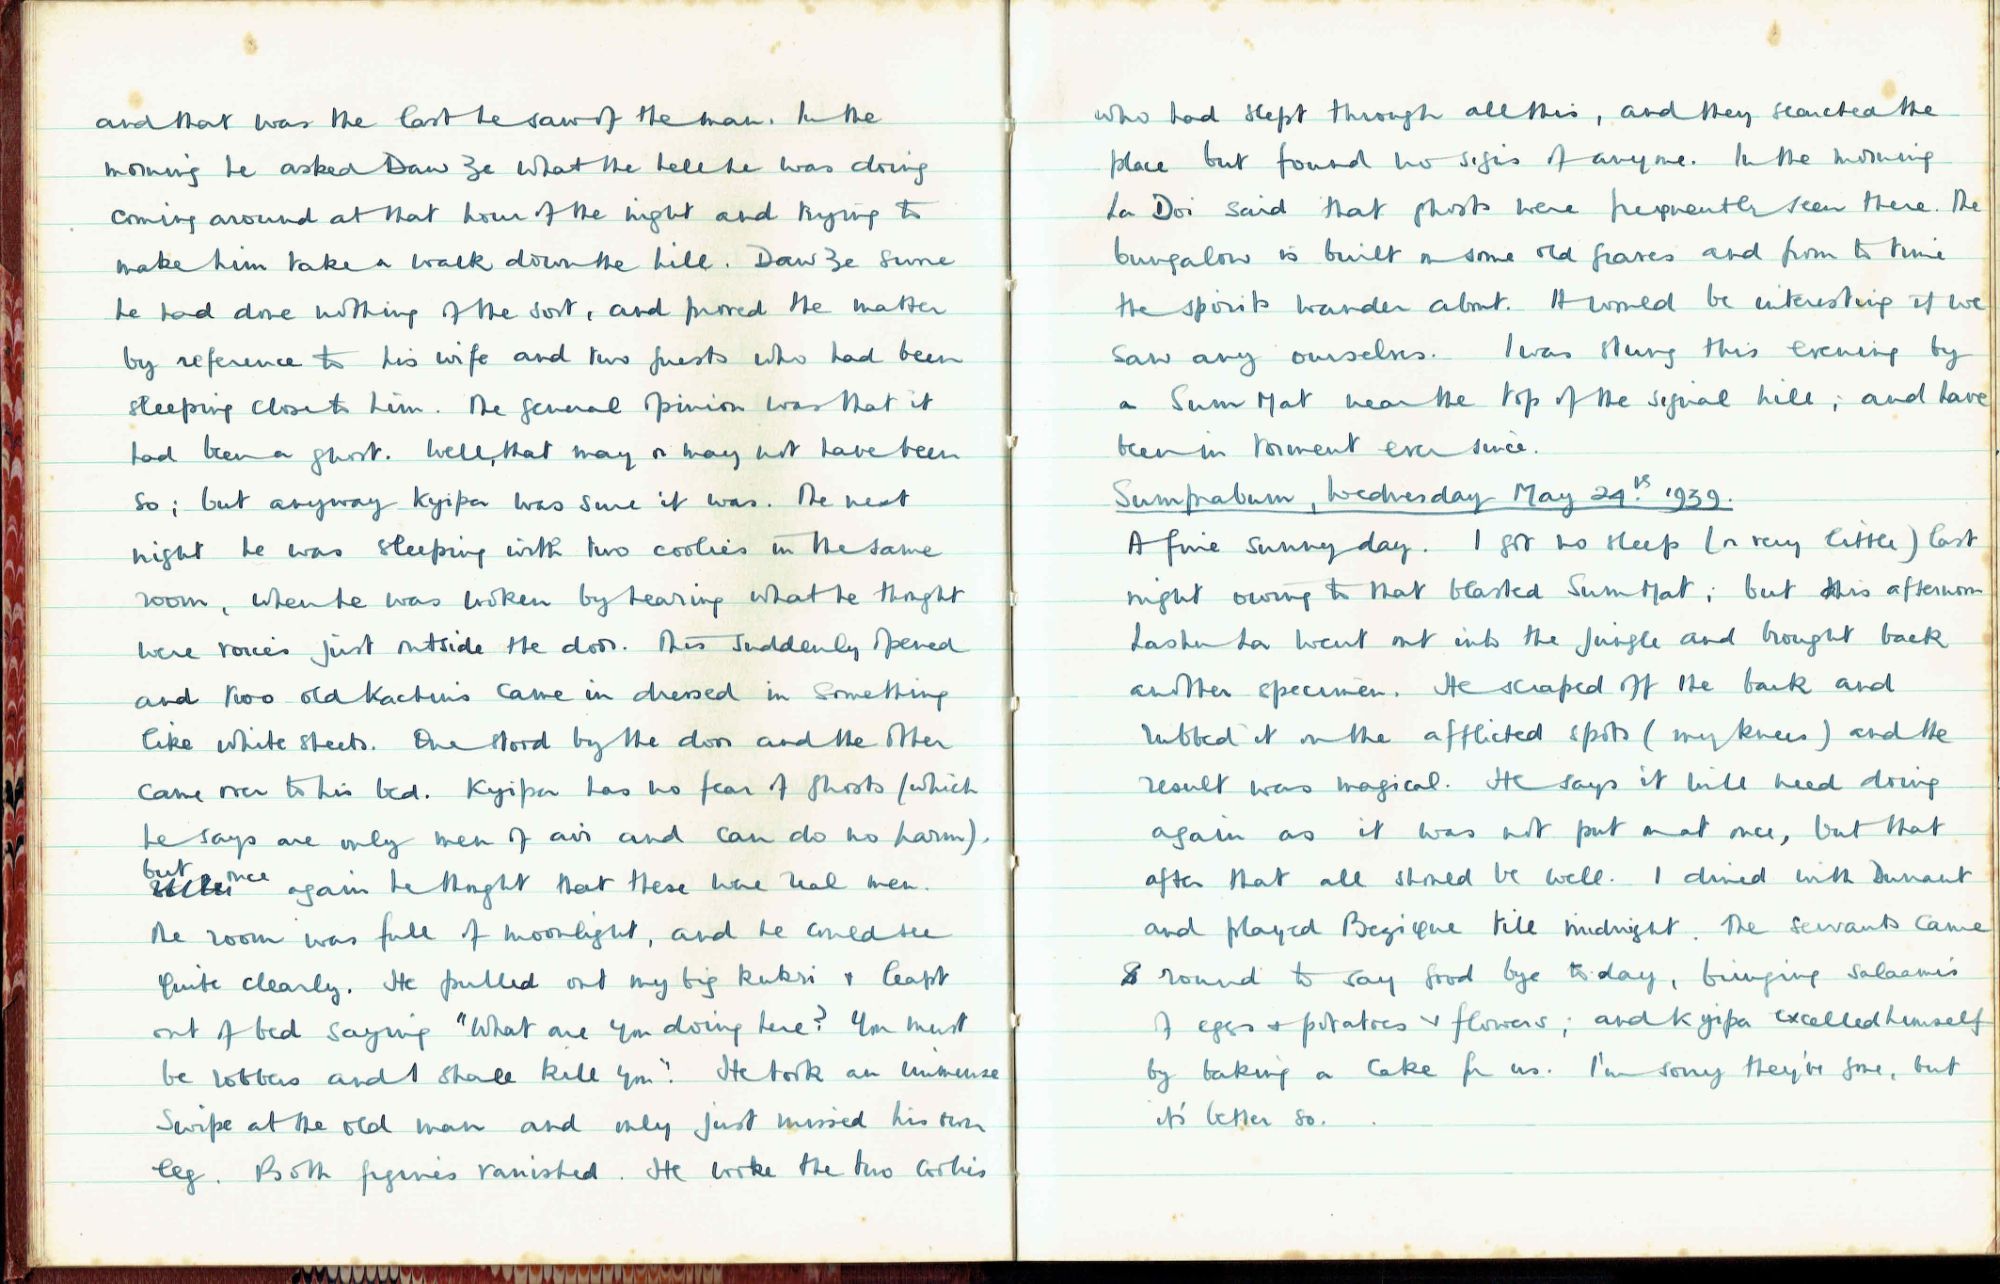 and that was the last he saw of the man. In the
morning he asked Daw Ze what the hell he was doing
coming around at that hour of the night and trying to
make him take a walk down the hill. Daw Ze swore
he had done nothing of the sort, and proved the matter
by reference to his wife and two guests who had been
sleeping close to him. The general opinion was that it
had been a ghost. Well, that may or may not have been
so; but anyway Kyipa was sure it was. The next
night he was sleeping with two coolies in the same
room, when he was woken by hearing what he thought
were voices just outside the door. This suddenly opened
and two old Kachins came in dressed in something
like white sheets. One stood by the door and the other
came over to his bed. Kyipa has no fear of ghosts (which
he says are only men of air and can do no harm).
but once again he thought that these were real men.
The room was full of moonlight, and he could see
quite clearly. He pulled out my big kukri & leapt
out of bed saying "What are you doing here? You must
be robbers and I shall kill you". He took an immense
swipe at the old man and only just missed his own
leg. Both figures vanished. He woke the two coolies
who had slept through all this, and they searched the
place but found no signs of anyone. In the morning
La Doi said that ghosts were frequently seen there. The
bungalow is built on some old graves and from to time
the spirits wander about. It would be interesting if we
saw any ourselves. I was stung this evening by
a Sum Mat near the top of the signal hill; and have
been in torment ever since.
Sumprabum, Wednesday May 24th. 1939.
A fine sunny day. I got no sleep (or very little) last
night owing to that blasted Sum Mat; but this afternoon
Lashu La went out into the jungle and brought back
another specimen. He scraped off the bark and
rubbed it on the afflicted spots (my knees) and the
result was magical. He says it will need doing
again as it was not put on at once, but that
after that all should be well. I dined with Durrant
and played Bezique till midnight. The servants came
round to say good bye today, bringing salaams
of eggs & potatoes & flowers; and Kyipa excelled himself
by baking a cake for us. I'm sorry they've gone, but
it's better so.